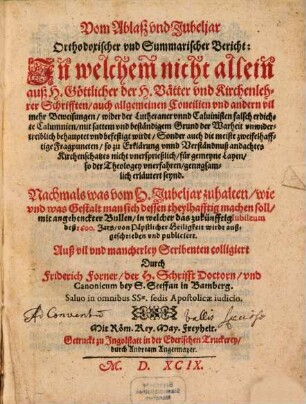 Vom Ablaß vnd Jubeljar
Orthodoxischer vnd Summarischer Bericht:
In welchem nicht allein
auß H. Göttlicher der H. Vätter vnd Kirchenleh-
rer Schrifften/ auch allgemeinen Concilien vnd andern vil
mehr Beweisungen/ wider der Lutheraner vnnd Caluinisten falsch erdich-
te Calumnien/ mit sattem vnd beständigem Grund der Warheit vnwider-
treiblich behauptet vnd befestigt wirdt/ Sonder auch die meiste zweifelhaff-
tige Fragpuncten/ so zu Erklärung vnnd Verständnuß andachtes
Kirchenschatzes nicht vnersprießlich/ für gemeyne Layen/
so der Theologey vnerfahren/ genugsam/
lich erläutert seynd.
Nachmals was vom H. Jubeljar zuhalten/ wie
vnd was Gestalt man sich dessen theylhafftig machen soll/
mit angehenckten Bullen/ in welcher das zukünfftig Iubileum
deß 1600. Jars/ von Päpstlicher Heiligkeit wirdt auß-
geschrieben vnd publiciert.
Auß vil vnd mancherley Scribenten colligiert
Durch
Friderich Forner/ der H. Schrifft Doctorn/ vnd
Canonicum bey S. Steffan in Bamberg.
Saluo in omnibus SSæ. sedis Apostolicæ iudicio.
Conventus
Mit Röm. Key. May. Freyheit.
Getruckt zu Ingolstatt in der Ederischen Truckerey/
durch Andream Angermayer.
M. D. XCIX.